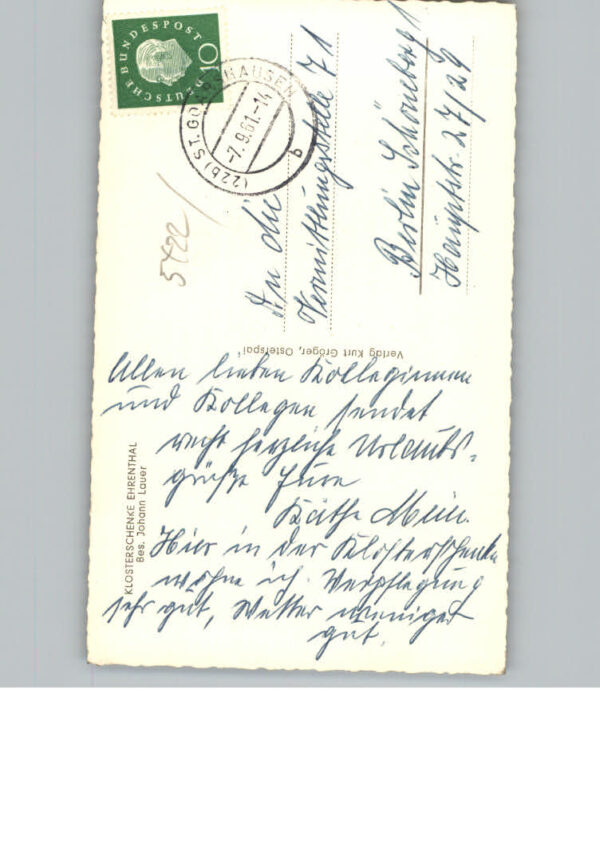 DEUTSCHE BUNDESPOST
10
(22b) ST. GOARSHAUSEN
-7.9.61.-14
b
5422
An die
Vermittlungsstelle 71
Berlin Schöneberg 1
Hauptstr. 27/29
Verlag Kurt Gröger, Osterspai
KLOSTERSCHENKE EHRENTHAL
Bes. Johann Lauer
Allen lieben Kolleginnen
und Kollegen sendet
recht herzliche Urlaubs-
grüße Eure
Käthe
Hier in der Klosterschenke
wohne ich. Verpflegung
sehr gut, Wetter weniger
gut.